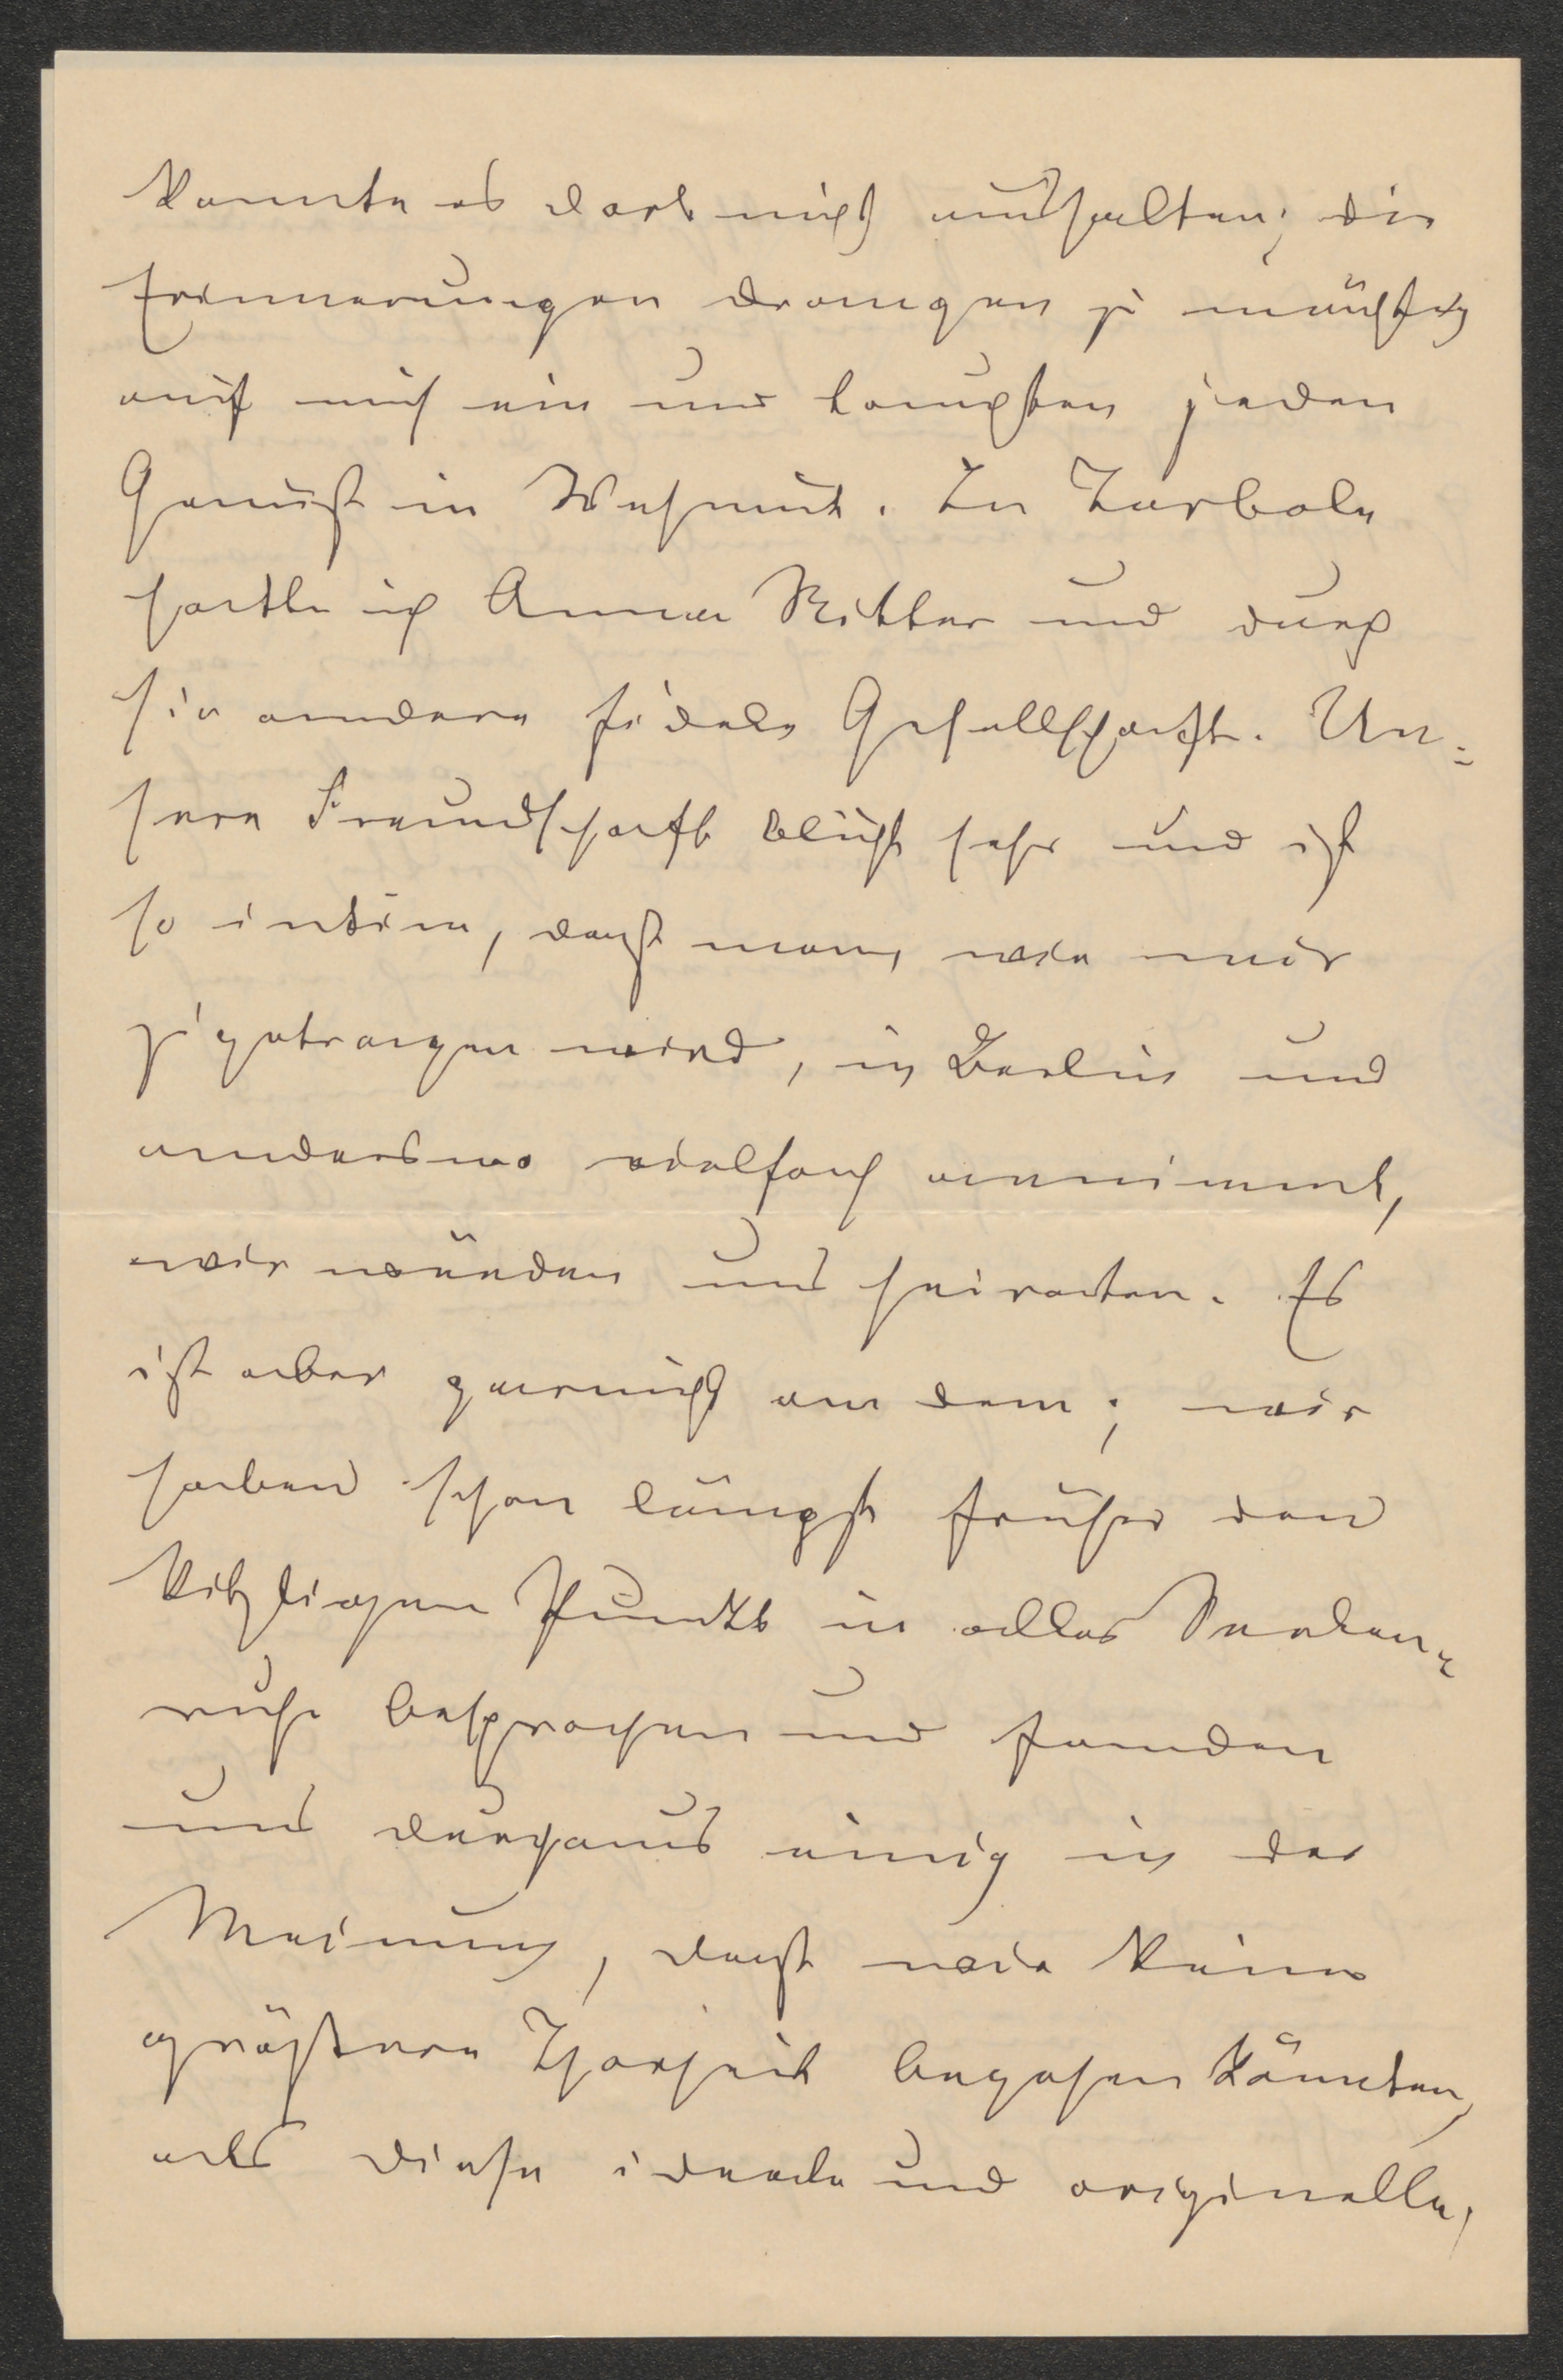 konnte es dort nicht aushalten; die
Erinnerungen drangen zu mächtig
auf mich ein und tauchten jeden
Genuß in Wehmut. In Torbole
hatte ich Anna Ritter und durch
sie andere fidele Gesellschaft. Un=
sere Freundschaft blüht sehr und ist
so intim, daß man, wie mir
zugetragen wird, in Berlin und
anderswo vielfach annimmt,
wir würden uns heiraten. Es
ist aber garnicht an dem; wir
haben schon längst früher den
kitzligen Punkt in aller Seelen=
ruhe besprochen und fanden
uns durchaus einig in der
Meinung, daß wir keine
größere Thorheit begehen könnten,
als diese ideale und originelle,